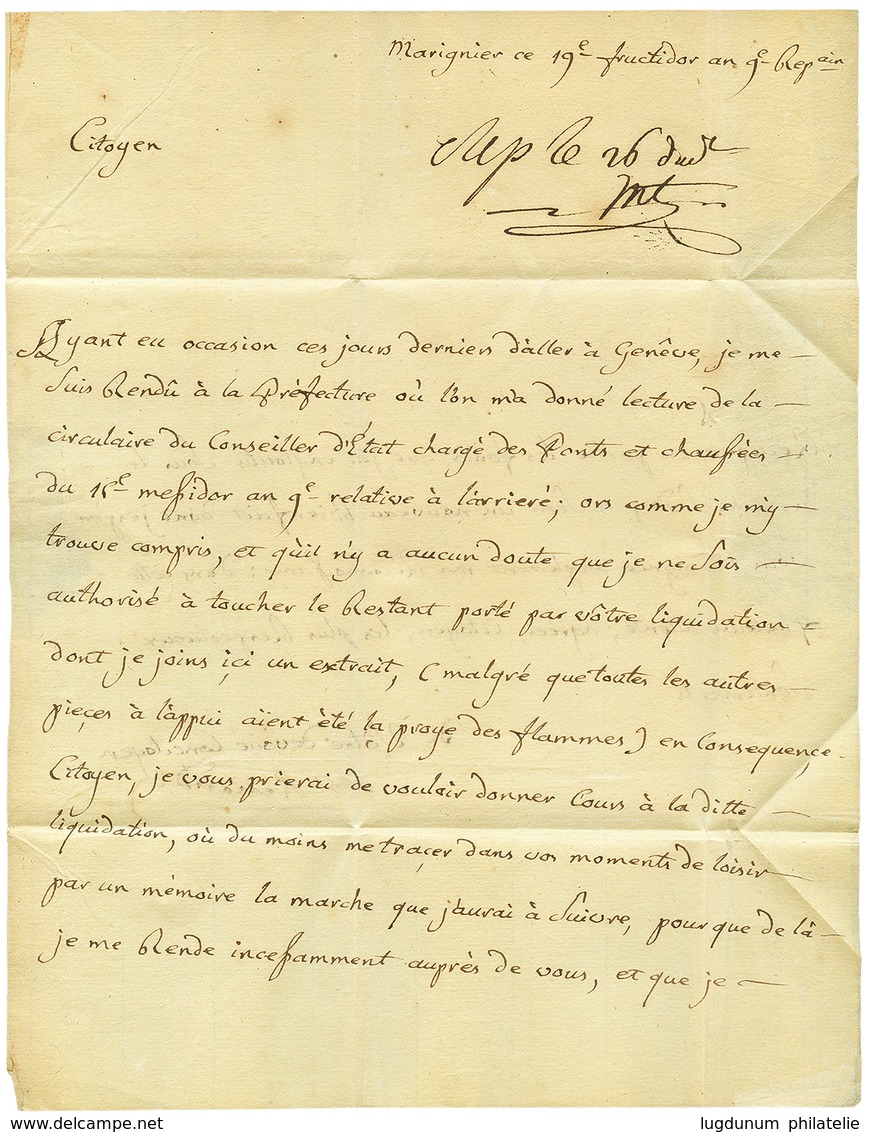 Marignier ce 19e fructidor an 9e Rep.ain
Citoyen
Rep le 26 dud
Ayant eu occasion ces jours derniers d'aller à Genêve, je me
suis Rendû à la Préfecture où l'on m'a donné lecture de la
circulaire du Conseiller d'État chargé des Ponts et chaussées
du 15e messidor an 9e relative à l'arrieré; ors comme je m'y
trouve compris, et qu'il n'y a aucun doute que je ne sois
authorisé à toucher le Restant porté par vôtre liquidation
dont je joins içi un extrait, (malgré que toutes les autres
pieçes à l'àppui aïent èté la proye des flammes) en Consequençe
Citoyen, je vous prierai de vouloir donner Cours à la ditte
liquidation, où du moins me traçer dans vos moments de loisir
par un mémoire la marche que j'aurai à suivre, pour que de là
je me Rende incessamment auprès de vous, et que je
www.delcampe.net
lugdunum philatelie